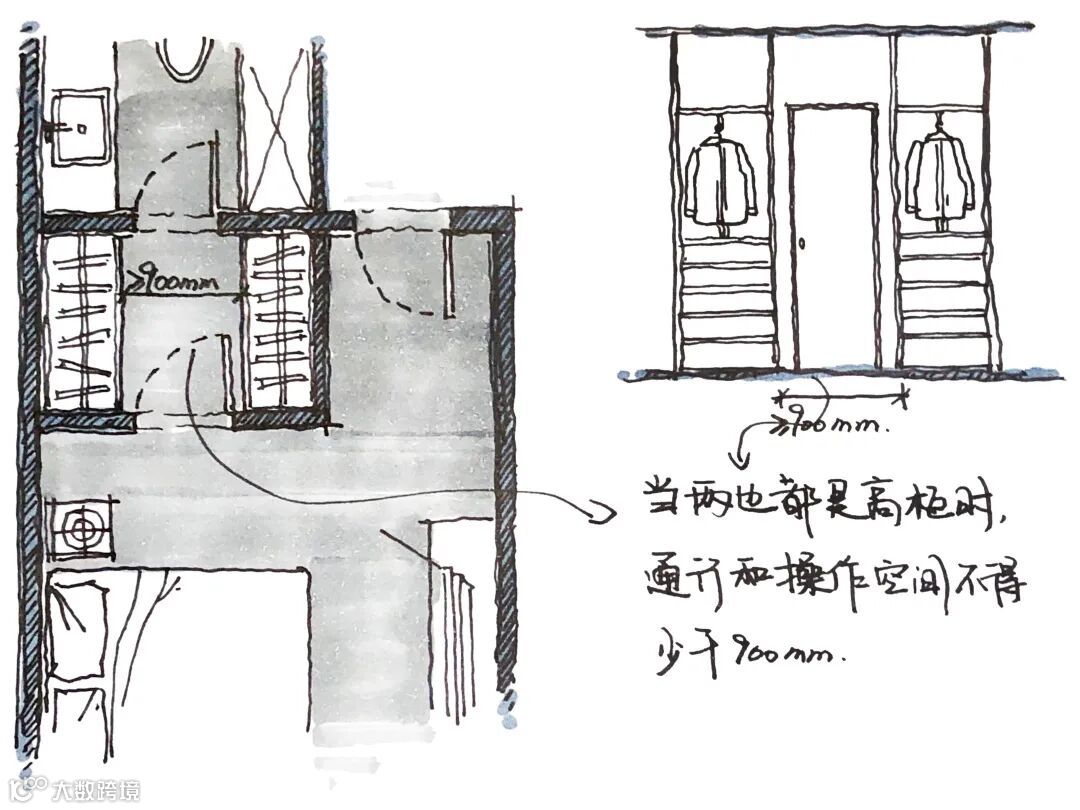 ≥900mm
≥900mm.
当两边都是高柜时,
通行和操作空间不得
少于900mm.
大数跨境